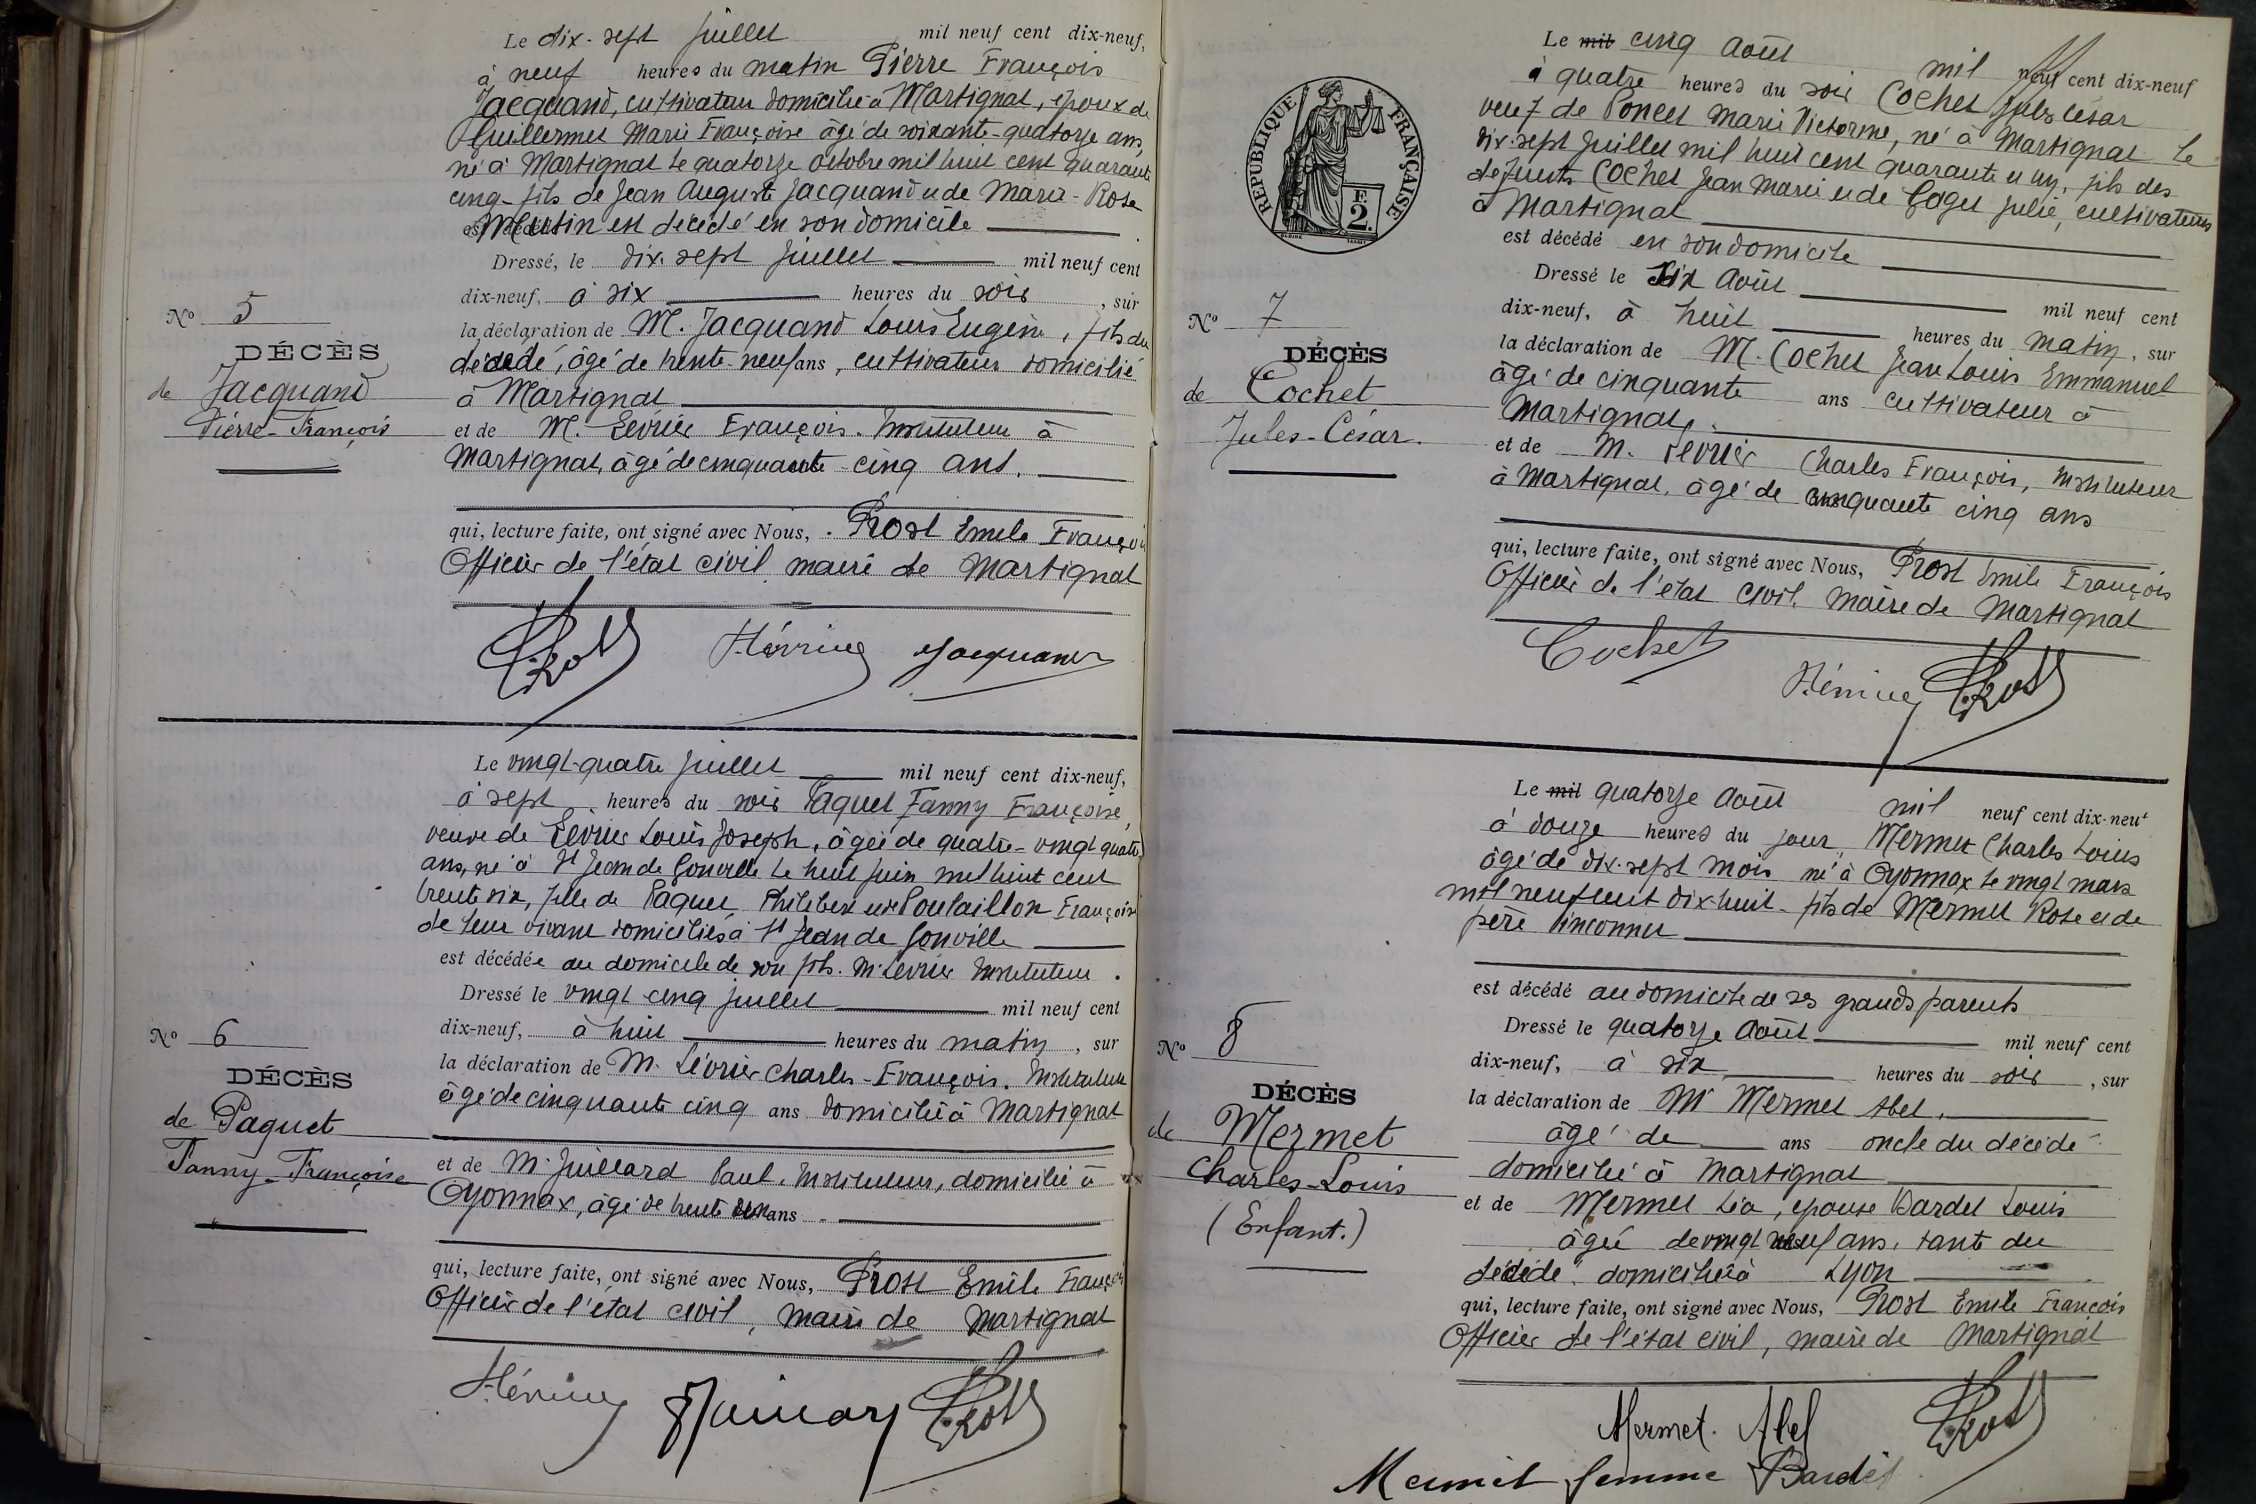 Le dix-sept juillet mil neuf cent dix-neuf,
à neuf heures du matin Pierre François
Jacquand, cultivateur domicilié à Martignat, époux de
Guillermet Marie Françoise âgé de soixante-quatorze ans,
né à Martignat le quatorze octobre mil huit cent quarante
cinq - fils de Jean Auguste Jacquand et de Marie-Rose
Martin est décédé en son domicile
Dressé, le dix-sept juillet mil neuf cent
dix-neuf, à six heures du soir, sur
la déclaration de M. Jacquand Louis Eugène, fils du
décédé, âgé de trente-neuf ans, cultivateur domicilié
à Martignat
et de M. Lévrier François. Instituteur à
Martignat, âgé de cinquante-cinq ans.
qui, lecture faite, ont signé avec Nous, Prost Emile François
Officier de l'état civil, maire de Martignat
Prost Lévrier Jacquand
No 5
DÉCÈS
de Jacquand
Pierre-François
Le vingt-quatre juillet mil neuf cent dix-neuf,
à sept heures du soir Paquet Fanny Françoise,
veuve de Lévrier Louis Joseph, âgée de quatre-vingt quatre
ans, né à St Jean de Gonville le huit juin mil huit cent
trente six, fille de Paquet Philibert et de Poulaillon Françoise
de leur vivant domiciliés à St Jean de Gonville
est décédée au domicile de son fils. M. Lévrier Instituteur.
Dressé le vingt-cinq juillet mil neuf cent
dix-neuf, à huit heures du matin, sur
la déclaration de M. Lévrier Charles-François. Instituteur
âgé de cinquante cinq ans domicilié à Martignat
et de M. Juillard Paul, Instituteur, domicilié à
Oyonnax, âgé de trente ans
qui, lecture faite, ont signé avec Nous, Prost Emile François
Officier de l'état civil, maire de Martignat
Lévrier Juillard Prost
No 6
DÉCÈS
de Paquet
Fanny-Françoise
RÉPUBLIQUE FRANÇAISE
F.
2.
Le mil cinq Août mil neuf cent dix-neuf
à quatre heures du soir Cochet Jules César
veuf de Poncet Marie Victorine, né à Martignat le
dix-sept juillet mil huit cent quarante et un, fils des
défunts Cochet Jean Marie et de Goget Julie, cultivateurs
à Martignat
est décédé en son domicile
Dressé le six Août mil neuf cent
dix-neuf, à huit heures du matin, sur
la déclaration de M. Cochet Jean Louis Emmanuel
âgé de cinquante ans cultivateur à
Martignat,
et de M. Lévrier Charles François, Instituteur
à Martignat, âgé de cinquante cinq ans
qui, lecture faite, ont signé avec Nous, Prost Emile François
Officier de l'état civil, maire de Martignat
Cochet Lévrier Prost
No 7
DÉCÈS
de Cochet
Jules-César.
Le mil quatorze Août mil neuf cent dix-neuf
à douze heures du jour, Mermet Charles Louis
âgé de dix-sept mois né à Oyonnax le vingt mars
mil neuf cent dix-huit - fils de Mermet Rose et de
père inconnu
est décédé au domicile de ses grands parents
Dressé le quatorze Août mil neuf cent
dix-neuf, à six heures du soir, sur
la déclaration de Mr Mermet Abel,
âgé de ans oncle du décédé
domicilié à Martignat
et de Mermet Léa, épouse Bardet Louis
âgée de vingt neuf ans, tante du
décédé domiciliée à Lyon
qui, lecture faite, ont signé avec Nous, Prost Emile François
Officier de l'état civil, maire de Martignat
Mermet. Abel Prost
Mermet femme Bardet
No 8
DÉCÈS
de Mermet
Charles-Louis
(Enfant.)